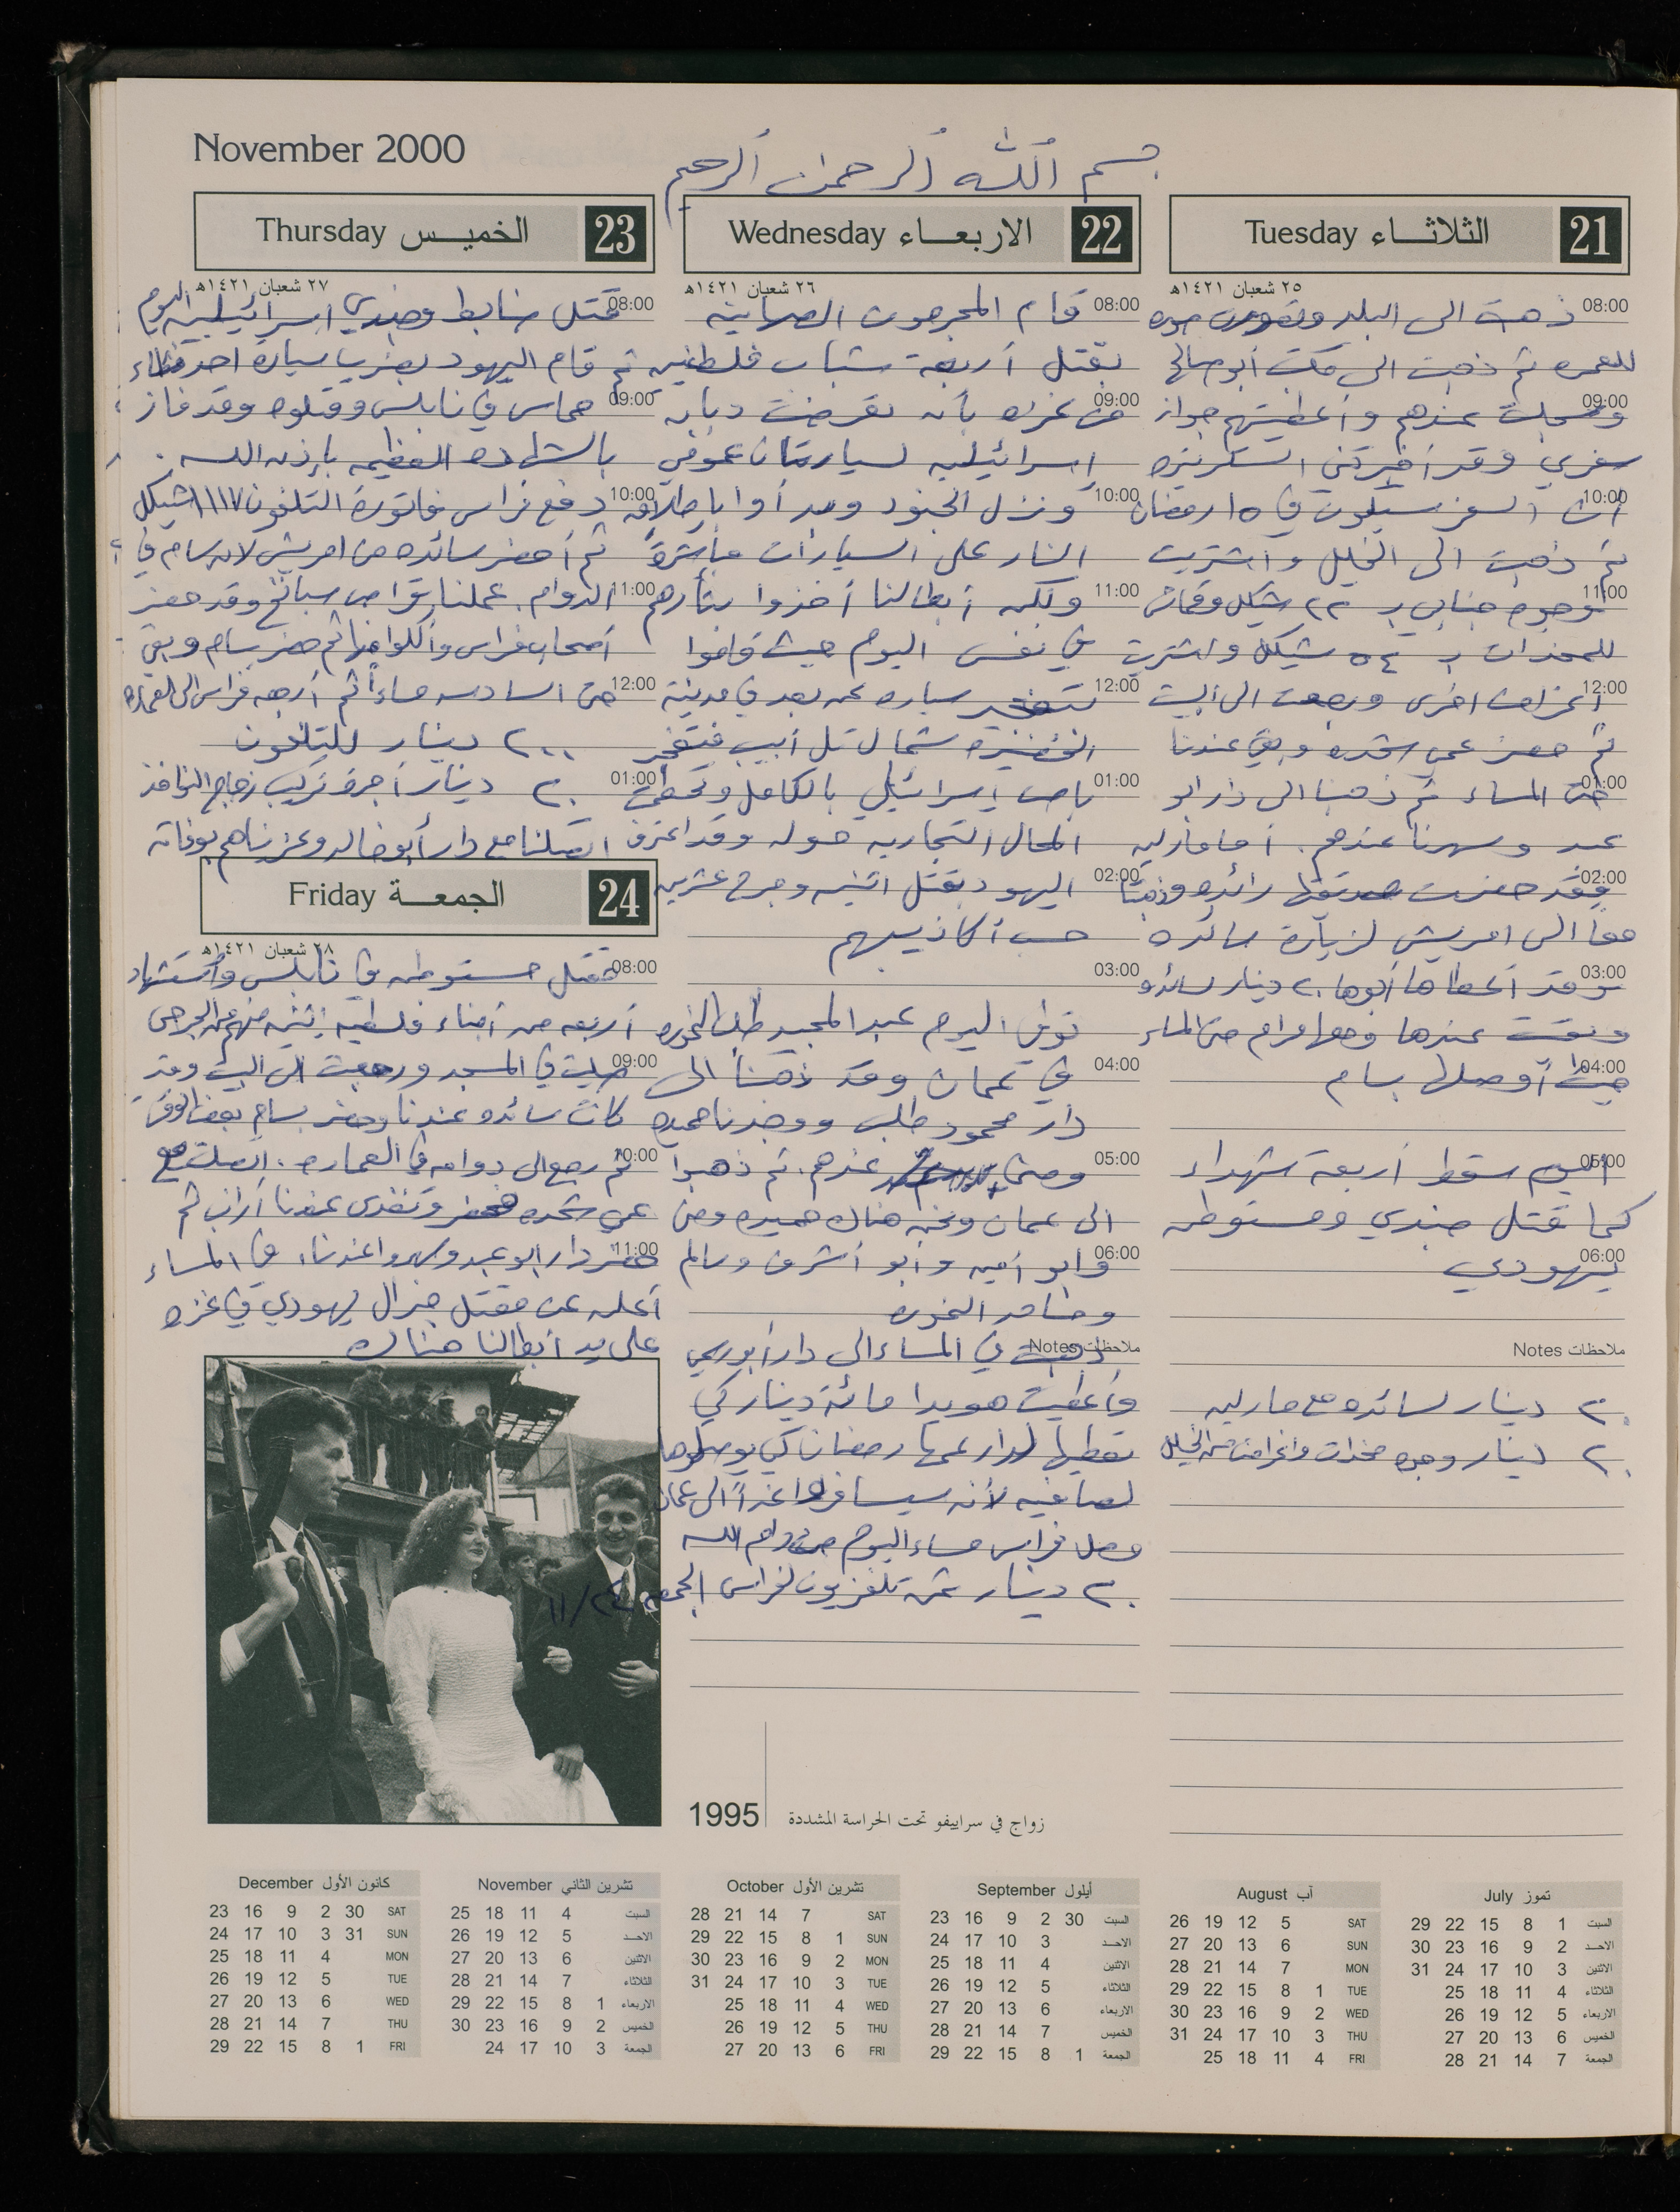 November 2000
بسم الله الرحمن الرحيم
21 الثلاثاء Tuesday
٢٥ شعبان ١٤٢١هـ
08:00 ذهبت الى البلد وتصورت صوره
للعمره ثم ذهبت الى مكتب أبو صالح
09:00 وسجلت عندهم وأعطيتهم جواز
سفري وقد أخبرتني السكرتيره
10:00 أن السفر سيكون في ١٥ رمضان
ثم ذهبت الى الخليل واشتريت
11:00 وجوه جنابي بـ ٢٢ شيكل وقماش
للمخدات بـ ٥٤ شيكل واشتريت
12:00 أغراض اخرى ورجعت الى البيت
ثم حضر عمي شحده وبقي عندنا
01:00 حتى المساء ثم ذهبنا الى دار ابو
عبد وسهرنا عندهم. أما مارلين
02:00 فقد حضرت صديقتها رائده وذهبتا
معاً الى امريش لزيارة سائده
03:00 وقد أعطاها أبوها ٢٠ دينار لسائده
وبقيت عندها ومعها مرام حتى المساء
04:00 حيث أوصلها بسام
05:00 اليوم سقط أربعة شهداء
كما قتل جندي ومستوطن
06:00 يهودي
ملاحظات Notes
٢٠ دينار لسائده مع مارلين
٢٠ دينار وجوه مخدات واغراض من الخليل
22 الاربعاء Wednesday
٢٦ شعبان ١٤٢١هـ
08:00 قام المجرمون الصهاينة
بقتل أربعة شباب فلسطينيين
09:00 من غزه بأن تعرضت دبابه
إسرائيليه لسيارتان عموفي
10:00 ونزل الجنود وبدأوا بإطلاق
النار على السيارات مباشرةً
11:00 ولكن أبطالنا أخذوا بثأرهم
في نفس اليوم حيث قاموا
12:00 بتفجير سياره عن بعد في مدينة
الخضيره شمال تل أبيب فتفجر
01:00 باص إسرائيلي بالكامل وتحطمت
المحال التجاريه حوله وقد اعترف
02:00 اليهود بقتل اثنين وجرح عشرين
حسب أكاذيبهم
03:00
توفي اليوم عبد المجيد طلب النحوره
04:00 في عمان وقد ذهبنا الى
دار محمود طلب ووجدنا حميده
05:00 ومنى عندهم. ثم ذهبوا
الى عمان ونحن هناك حميده ومنى
06:00 وابو أمين وأبو أشرف وسالم
وضامر النحوره
ملاحظات Notes ذهبت في المساء الى دار أبو ربحي
وأعطيت هويدا مائة دينار كي
تعطيها لدار عمها رمضان كي يوصلوها
لصافيه لأنه سيسافر غداً الى عمان
وصل فراس مساء اليوم من رام الله
٢٠ دينار ثمن تلفزيون لفراس الجمعه ١١/٢٤
23 الخميس Thursday
٢٧ شعبان ١٤٢١هـ
08:00 قتل ضابط وجندي اسرائيليين اليوم
ثم قام اليهود بضرب سياره احد نشطاء
09:00 حماس في نابلس وقتلوه وقد فاز
بالشهاده العظيمه بإذن الله.
10:00 دفع فراس فاتورة التلفون ١١١٧ شيكل
ثم أحضر سائده من امريش لان بسام في
11:00 الدوام. عملنا قراص سبانخ وقد حضر
أصحاب فراس وأكلوا منها ثم حضر بسام وبقي
12:00 حتى السادسه مساءاً ثم أرجعه فراس الى العماره
٢٠٠ دينار للتلفون
01:00 ٢٠ دينار أجرة تركيب زجاج النوافذ
اتصلنا مع دار أبو خالد وعزيناهم بوفاة
24 الجمعة Friday
٢٨ شعبان ١٤٢١هـ
08:00 مقتل مستوطن في نابلس وأستشهاد
أربعه من أبناء فلسطين إثنين منهم من الجرحى
09:00 صليت في المسجد ورجعت الى البيت وقد
كانت سائده عندنا وحضر بسام بعض الوقت
10:00 ثم رجع الى دوامه في العماره. اتصلت مع
عمي شحده فحضر وتغدى عندنا أرانب ثم
11:00 حضر دار ابو عبد وسهروا عندنا. في المساء
أعلن عن مقتل جنرال يهودي في غزه
على يد أبطالنا هناك
1995 زواج في سراييفو تحت الحراسة المشددة
تموز July
السبت 1 8 15 22 29
الاحد 2 9 16 23 30
الاثنين 3 10 17 24 31
الثلاثاء 4 11 18 25
الاربعاء 5 12 19 26
الخميس 6 13 20 27
الجمعة 7 14 21 28
آب August
SAT 5 12 19 26
SUN 6 13 20 27
MON 7 14 21 28
TUE 1 8 15 22 29
WED 2 9 16 23 30
THU 3 10 17 24 31
FRI 4 11 18 25
أيلول September
السبت 30 2 9 16 23
الاحد 3 10 17 24
الاثنين 4 11 18 25
الثلاثاء 5 12 19 26
الاربعاء 6 13 20 27
الخميس 7 14 21 28
الجمعة 1 8 15 22 29
تشرين الأول October
SAT 7 14 21 28
SUN 1 8 15 22 29
MON 2 9 16 23 30
TUE 3 10 17 24 31
WED 4 11 18 25
THU 5 12 19 26
FRI 6 13 20 27
تشرين الثاني November
السبت 4 11 18 25
الاحد 5 12 19 26
الاثنين 6 13 20 27
الثلاثاء 7 14 21 28
الاربعاء 1 8 15 22 29
الخميس 2 9 16 23 30
الجمعة 3 10 17 24
كانون الأول December
SAT 30 2 9 16 23
SUN 31 3 10 17 24
MON 4 11 18 25
TUE 5 12 19 26
WED 6 13 20 27
THU 7 14 21 28
FRI 1 8 15 22 29